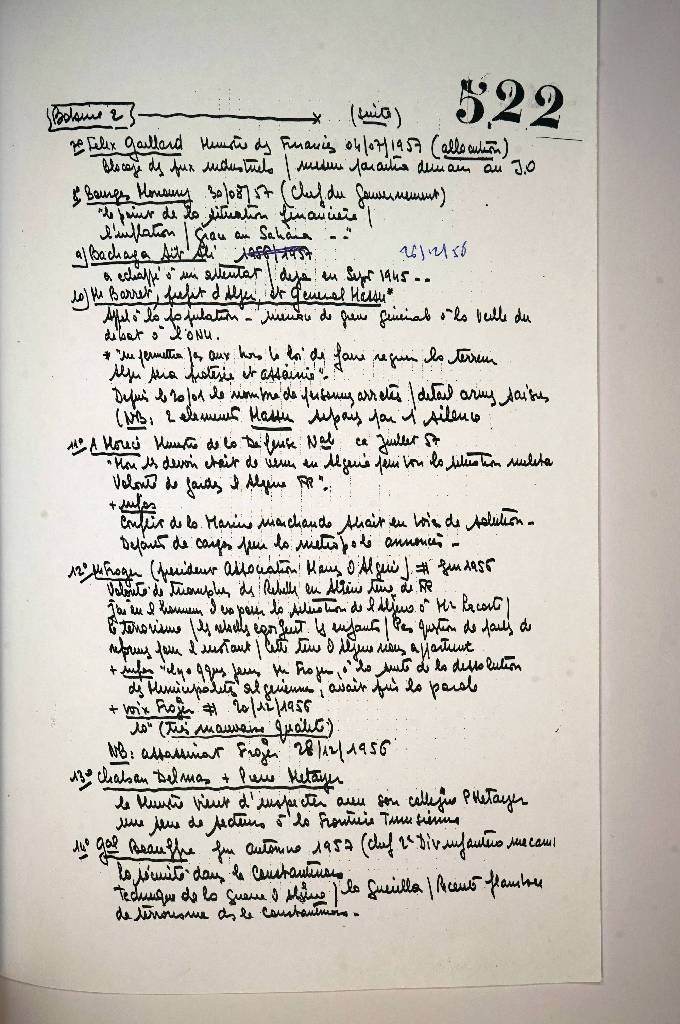 522
Bobine 2 (suite)
7° Felix Gaillard Ministre des Finances 04/07/1957 (allocution)
Blocage des prix industriels / mesure paraitra demain au J.O
8° Bourges Monoury 30/08/57 (Chef du Gouvernement)
"le point de la situation financière /
l'inflation / Grace au Sahara - - "
9) Bachaga Aït Ali 1956/1957 26/12/56
a échappé à un attentat / deja en Sept 1945 - -
10) Mr Barret, prefet d'Alger, et General Massu*
Appel à la population - menace de greve générale à la veille du
debat à l'ONU.
* "ne permettra pas aux hors la loi de faire regner la terreur
Alger sera protégée et assainie".
Depuis le 20/01 le nombre de personnes arretées / detail armes saisies
(NB: 2 elements Massu separés par 1 silence
11° A Morice Ministre de la Defense Nale ca Juillet 57
"Mon 1er devoir etait de venir en Algerie pour voir la situation militaire
Volonté de garder l'Algerie FR".
+ infos
Conflit de la Marine marchande serait en voie de solution -
Departs de cargos pour la metropole annoncés -
12° Mr Froger (president Association Maires d'Algerie) # fin 1956
Volonté de triompher des Rebelles en Algérie terre de FR
J'ai eu l'honneur d'exposer la situation de l'Algerie à Mr Lacoste /
le terrorisme / les rebelles egorgent les enfants / Pas question de parler de
reformes pour l'instant / Cette terre d'Algerie nous appartient
+ infos "il y a qques jours Mr Froger, à la suite de la dissolution
des Municipalités algeriennes, avait pris la parole
+ voix Froger # 20/12/1956
10" (Très mauvaise qualité)
NB: assassinat Froger 28/12/1956
13° Chaban Delmas + Pierre Metayer
le Ministre vient d'inspecter avec son collegue P Metayer
une serie de secteurs à la Frontière Tunisienne
14° Gal Beauffre fin automne 1957 (Chef 2e Div infanterie mecani
La sécurité dans le Constantinois
Technique de la Guerre d'Algérie / la Guerilla / Recente flambée
de terrorisme ds le Constantinois -